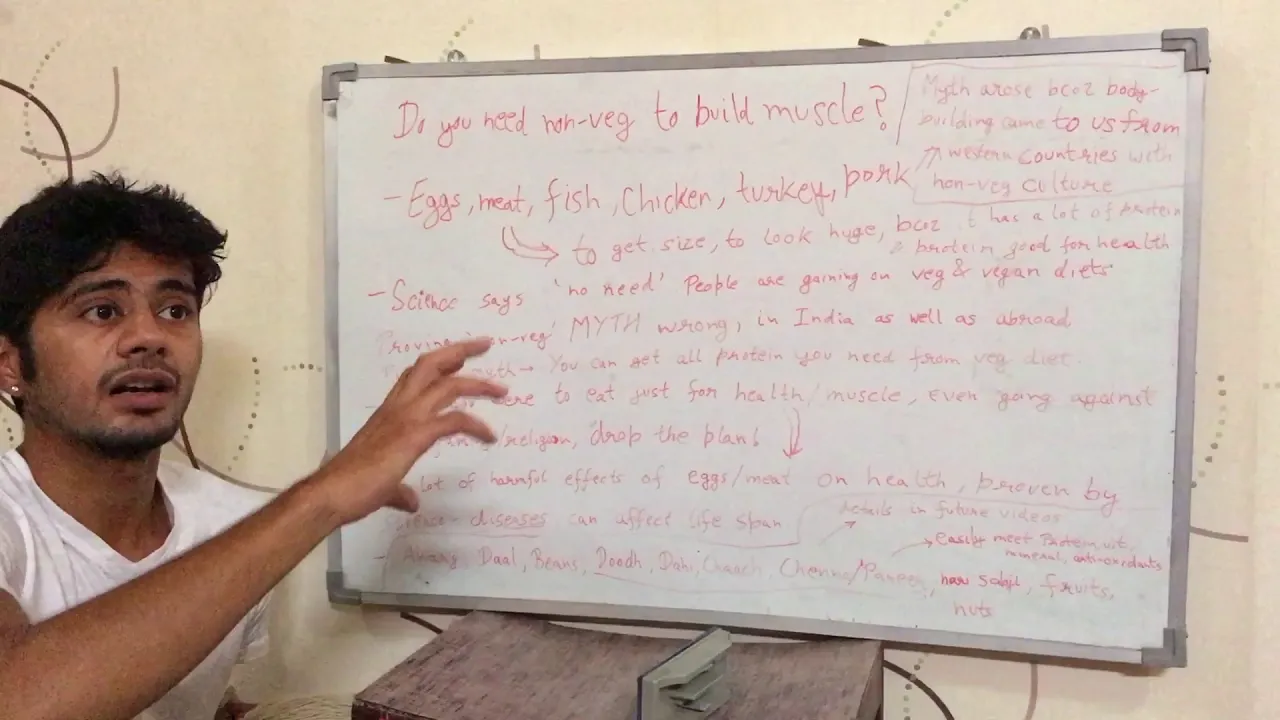 Do you need non-veg to build muscle?
Myth arose bcoz body-
building came to us from
western countries with
non-veg culture
- Eggs, meat, fish, Chicken, turkey, pork
to get size, to look huge, bcoz it has a lot of protein
& protein good for health
- Science says 'no need' People are gaining on veg & vegan diets
Proving non-veg' MYTH wrong, in India as well as abroad
myth → You can get all protein you need from veg diet.
to eat just for health/muscle, even going against
/religion, drop the plan!
lot of harmful effects of eggs/meat on health, proven by
Science - diseases can affect life span
details in future videos
- Daal, Beans, Doodh, Dahi, Chaach, Chenna/Paneer, hari sabji, fruits,
nuts
easily meet Protein, vit,
mineral, anti-oxidants